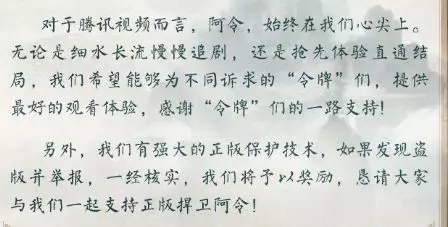 对于腾讯视频而言，阿令，始终在我们心尖上。
无论是细水长流慢慢追剧，还是抢先体验直通结
局，我们希望能够为不同诉求的“令牌”们，提供
最好的观看体验，感谢“令牌”们的一路支持！
另外，我们有强大的正版保护技术，如果发现盗
版并举报，一经核实，我们将予以奖励，恳请大家
与我们一起支持正版捍卫阿令！